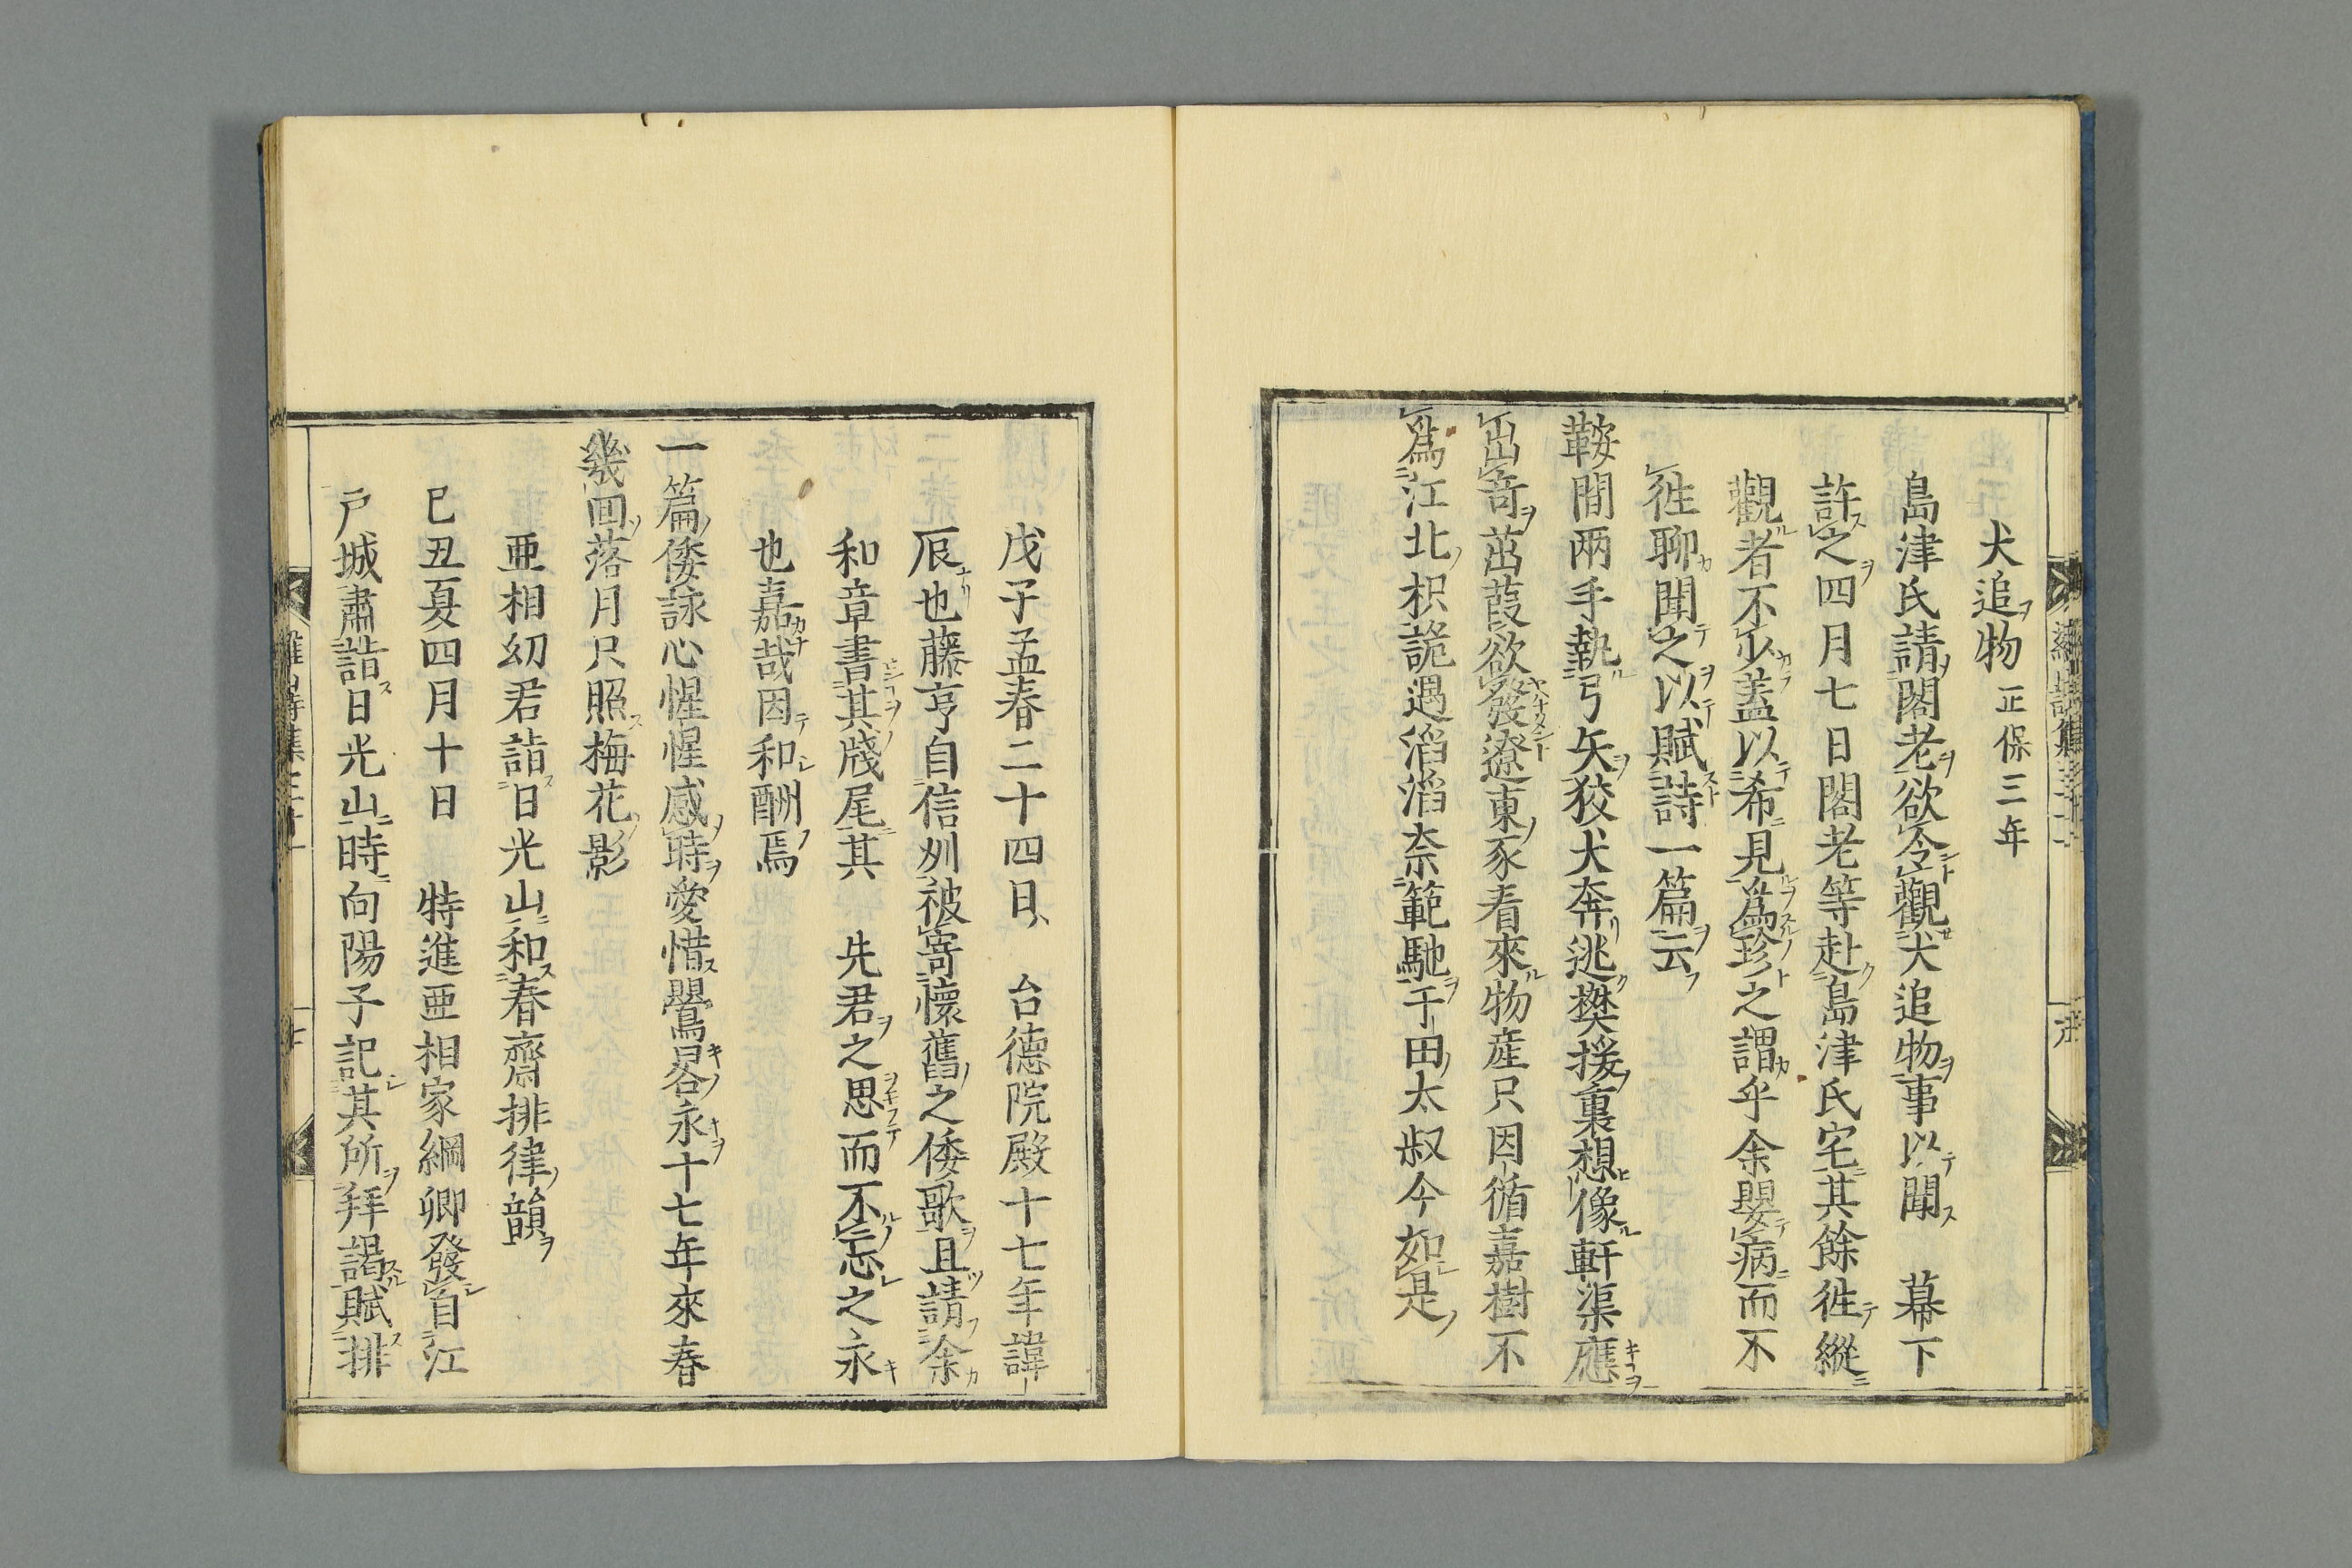 犬追物 正保三年
島津氏請閣老欲令觀犬追物事以聞　幕下
許之四月七日閣老等赴島津氏宅其餘徃縱
觀者不少蓋以希見爲珍之謂乎余嬰病而不
徃聊聞之以賦詩一篇云
鞍間兩手執弓矢狡犬奔逃樊援裏想像軒渠應
出竒茁葭欲發遼東豕看來物産只因循嘉樹不
爲江北枳詭遇滔滔柰範馳于田太叔今如是
戊子孟春二十四日　台德院殿十七年諱
辰也藤亨自信州被寄懷舊之倭歌且請余
和章書其牋尾其　先君之思而不忘之永
也嘉哉因和酬焉
一篇倭詠心惺惺感時愛惜罌晷永十七年來春
幾回落月只照梅花影
亜相幼君詣日光山和春齋排律韻
巳丑夏四月十日　特進亜相家綱卿發自江
戸城肅詣日光山時向陽子記其所拜謁賦排